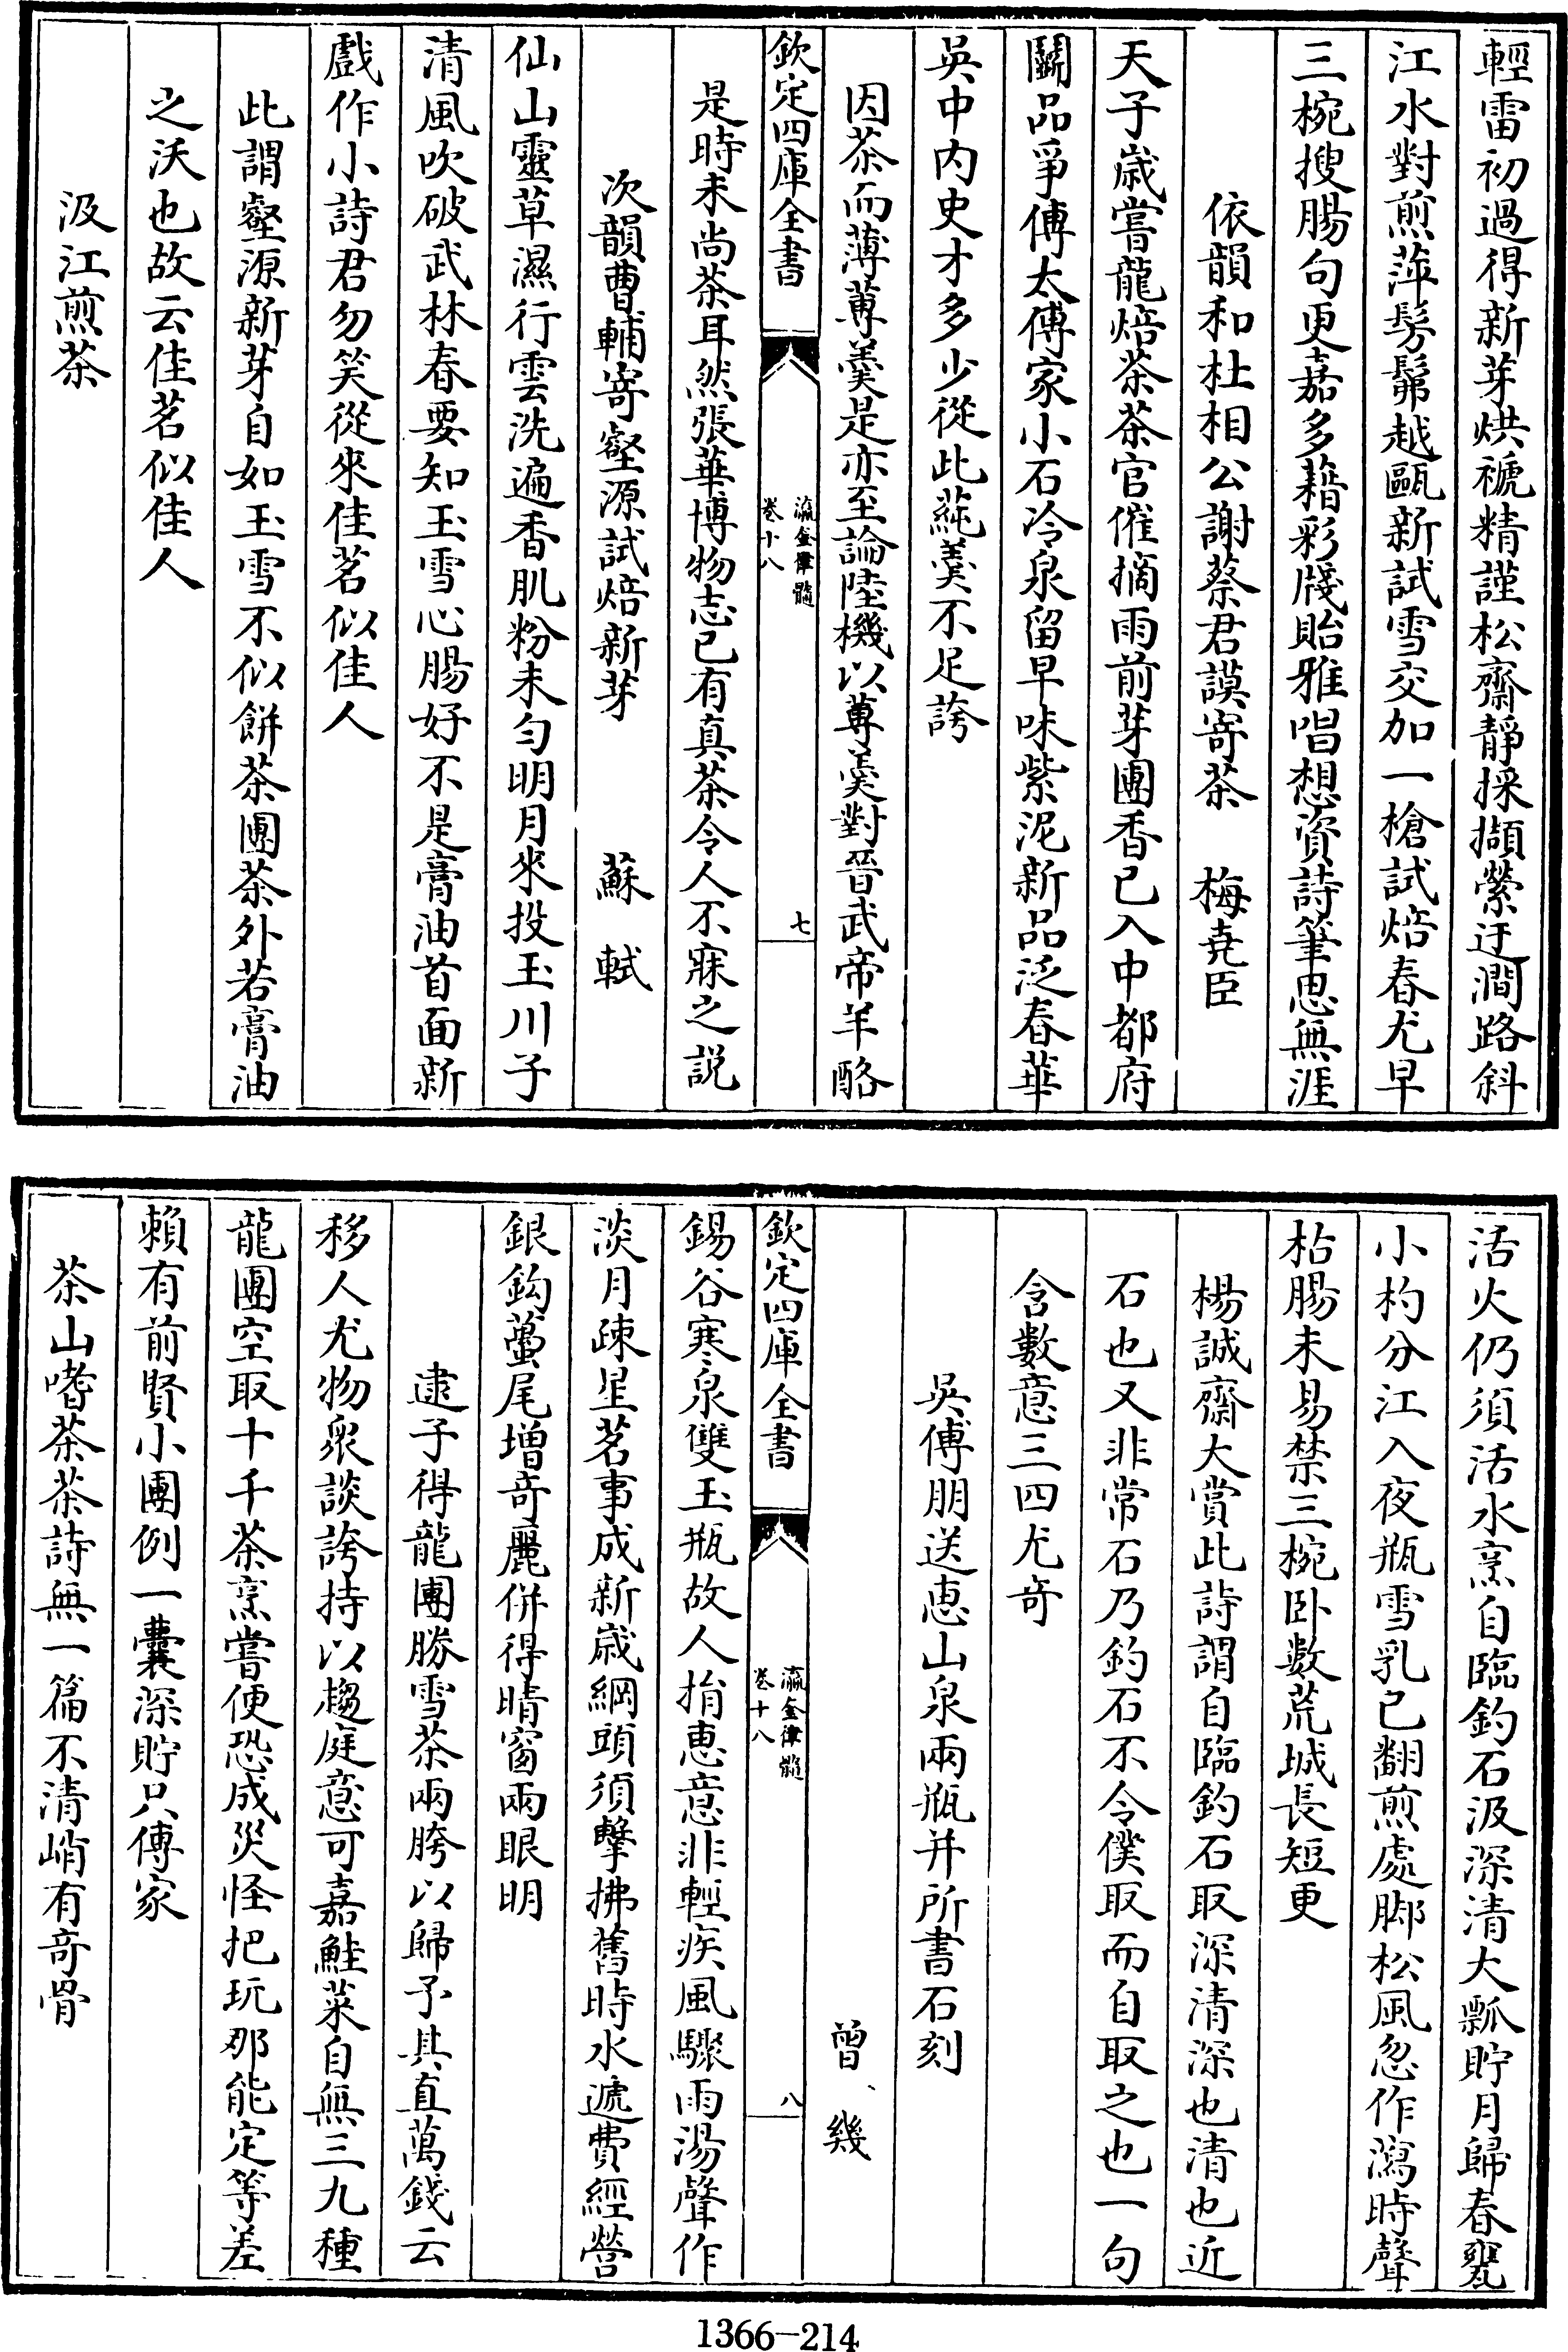 輕雷初過得新芽烘褫精謹松齋靜採擷縈迂澗路斜
江水對煎萍髣髴越甌新試雪交加一槍試焙春尤早
三椀搜腸句更嘉多藉彩牋貽雅唱想資詩筆思無涯
依韻和杜相公謝蔡君謨寄茶　梅堯臣
天子歲嘗龍焙茶茶官催摘雨前芽團香已入中都府
鬬品爭傳太傅家小石冷泉留早味紫泥新品泛春華
吳中內史才多少從此蒓羹不足誇
因茶而薄蓴羹是亦至論陸機以蓴羹對晉武帝羊酪
欽定四庫全書
瀛奎律髓
卷十八
七
是時未尚茶耳然張華博物志已有真茶令人不寐之説
次韻曹輔寄壑源試焙新芽　蘇軾
仙山靈草濕行雲洗遍香肌粉未勻明月來投玉川子
清風吹破武林春要知玉雪心腸好不是膏油首面新
戲作小詩君勿笑從來佳茗似佳人
此謂壑源新芽自如玉雪不似餅茶團茶外若膏油
之沃也故云佳茗似佳人
汲江煎茶
活火仍須活水烹自臨釣石汲深清大瓢貯月歸春甕
小杓分江入夜瓶雪乳已翻煎處脚松風忽作瀉時聲
枯腸未易禁三椀卧數荒城長短更
楊誠齋大賞此詩謂自臨釣石取深清深也清也近
石也又非常石乃釣石不令僕取而自取之也一句
含數意三四尤奇
吳傅朋送惠山泉兩瓶并所書石刻
曾幾
欽定四庫全書
瀛奎律髓
卷十八
八
錫谷寒泉雙玉瓶故人捐惠意非輕疾風驟雨湯聲作
淡月疎星茗事成新歲綱頭須擊拂舊時水遞費經營
銀鈎蠆尾增奇麗併得晴窗兩眼明
逮子得龍團勝雪茶兩胯以歸予其直萬錢云
移人尤物衆談誇持以趨庭意可嘉鮭菜自無三九種
龍團空取十千茶烹嘗便恐成災怪把玩那能定等差
賴有前賢小團例一囊深貯只傳家
茶山嗜茶茶詩無一篇不清峭有奇骨
1366—214